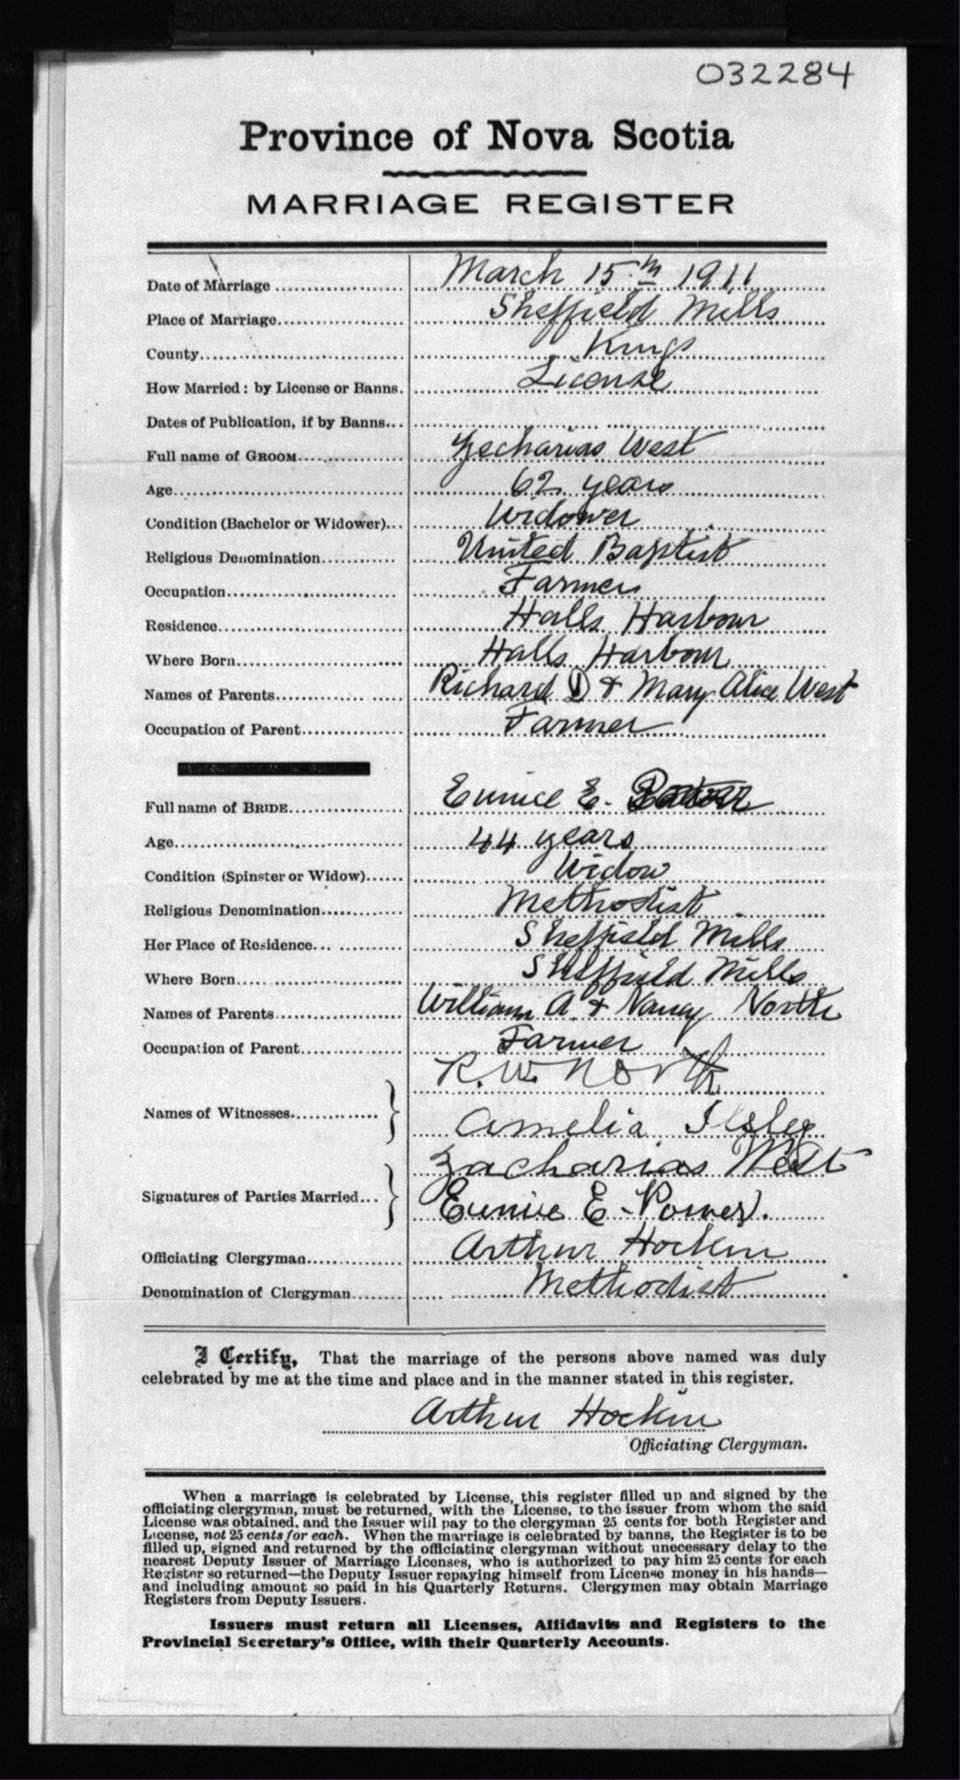 032284
Province of Nova Scotia
MARRIAGE REGISTER
Date of Marriage March 15th 1911
Place of Marriage Sheffield Mills
County Kings
How Married: by License or Banns. License
Dates of Publication, if by Banns
Full name of GROOM Zecharias West
Age 62 years
Condition (Bachelor or Widower) Widower
Religious Denomination United Baptist
Occupation Farmer
Residence Halls Harbour
Where Born Halls Harbour
Names of Parents Richard D & Mary Alice West
Occupation of Parent Farmer
Full name of BRIDE Eunice E.
Age 44 years
Condition (Spinster or Widow) Widow
Religious Denomination Methodist
Her Place of Residence Sheffield Mills
Where Born Sheffield Mills
Names of Parents William A. & Nancy North
Occupation of Parent Farmer
R. W. North
Names of Witnesses
Amelia Ilsley
Zacharias West
Signatures of Parties Married
Eunice E. Power.
Officiating Clergyman Arthur Hockin
Denomination of Clergyman Methodist
I Certify, That the marriage of the persons above named was duly
celebrated by me at the time and place and in the manner stated in this register.
Arthur Hockin
Officiating Clergyman.
When a marriage is celebrated by License, this register filled up and signed by the
officiating clergyman, must be returned, with the License, to the issuer from whom the said
License was obtained, and the Issuer will pay to the clergyman 25 cents for both Register and
License, not 25 cents for each. When the marriage is celebrated by banns, the Register is to be
filled up, signed and returned by the officiating clergyman without unnecessary delay to the
nearest Deputy Issuer of Marriage Licenses, who is authorized to pay him 25 cents for each
Register so returned—the Deputy Issuer repaying himself from License money in his hands—
and including amount so paid in his Quarterly Returns. Clergymen may obtain Marriage
Registers from Deputy Issuers.
Issuers must return all Licenses, Affidavits and Registers to the
Provincial Secretary's Office, with their Quarterly Accounts.